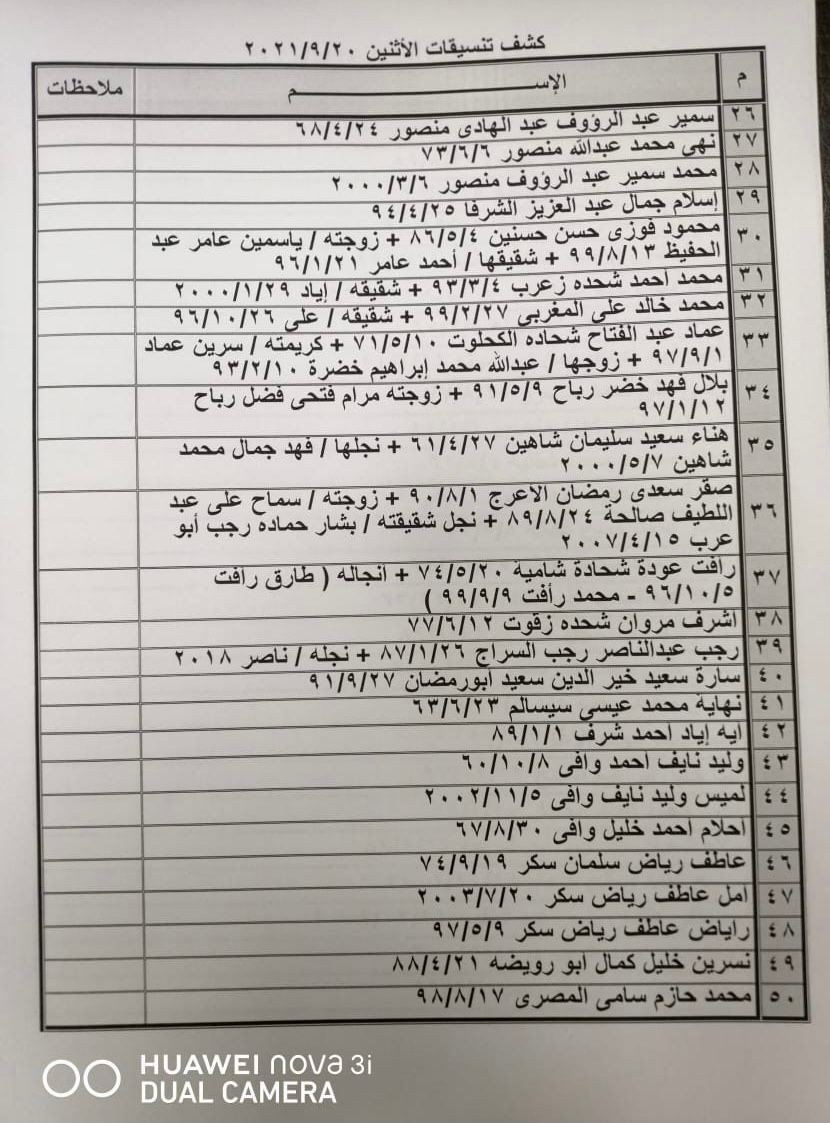 كشف تنسيقات الأثنين ٢٠٢١/٩/٢٠
م الإســــــم ملاحظات
٢٦ سمير عبد الرؤوف عبد الهادى منصور ٦٨/٤/٢٤
٢٧ نهى محمد عبدالله منصور ٧٣/٦/٦
٢٨ محمد سمير عبد الرؤوف منصور ٢٠٠٠/٣/٦
٢٩ إسلام جمال عبد العزيز الشرفا ٩٤/٤/٢٥
٣٠ محمود فوزى حسن حسنين ٨٦/٥/٤ + زوجته / ياسمين عامر عبد
الحفيظ ٩٩/٨/١٣ + شقيقها / أحمد عامر ٩٦/١/٢١
٣١ محمد أحمد شحده زعرب ٩٣/٣/٤ + شقيقه / إياد ٢٠٠٠/١/٢٩
٣٢ محمد خالد على المغربى ٩٩/٢/٢٧ + شقيقه / على ٩٦/١٠/٢٦
٣٣ عماد عبد الفتاح شحاده الكحلوت ٧١/٥/١٠ + كريمته / سرين عماد
٩٧/٩/١ + زوجها / عبدالله محمد إبراهيم خضرة ٩٣/٢/١٠
٣٤ بلال فهد خضر رباح ٩١/٥/٩ + زوجته مرام فتحى فضل رباح
٩٧/١/١٢
٣٥ هناء سعيد سليمان شاهين ٦١/٤/٢٧ + نجلها / فهد جمال محمد
شاهين ٢٠٠٠/٥/٧
٣٦ صقر سعدى رمضان الاعرج ٩٠/٨/١ + زوجته / سماح على عبد
اللطيف صالحة ٨٩/٨/٢٤ + نجل شقيقته / بشار حماده رجب أبو
عرب ٢٠٠٧/٤/١٥
٣٧ رأفت عودة شحادة شامية ٧٤/٥/٢٠ + أنجاله ( طارق رأفت
٩٦/١٠/٥ - محمد رأفت ٩٩/٩/٩ )
٣٨ اشرف مروان شحده زقوت ٧٧/٦/١٢
٣٩ رجب عبدالناصر رجب السراج ٨٧/١/٢٦ + نجله / ناصر ٢٠١٨
٤٠ سارة سعيد خير الدين سعيد أبورمضان ٩١/٩/٢٧
٤١ نهاية محمد عيسى سيسالم ٦٣/٦/٢٣
٤٢ ايه إياد احمد شرف ٨٩/١/١
٤٣ وليد نايف احمد وافى ٦٠/١٠/٨
٤٤ لميس وليد نايف وافى ٢٠٠٢/١١/٥
٤٥ احلام احمد خليل وافى ٦٧/٨/٣٠
٤٦ عاطف رياض سلمان سكر ٧٤/٩/١٩
٤٧ امل عاطف رياض سكر ٢٠٠٣/٧/٢٠
٤٨ راياض عاطف رياض سكر ٩٧/٥/٩
٤٩ نسرين خليل كمال ابو رويضه ٨٨/٤/٢١
٥٠ محمد حازم سامى المصرى ٩٨/٨/١٧
HUAWEI nova 3i
DUAL CAMERA